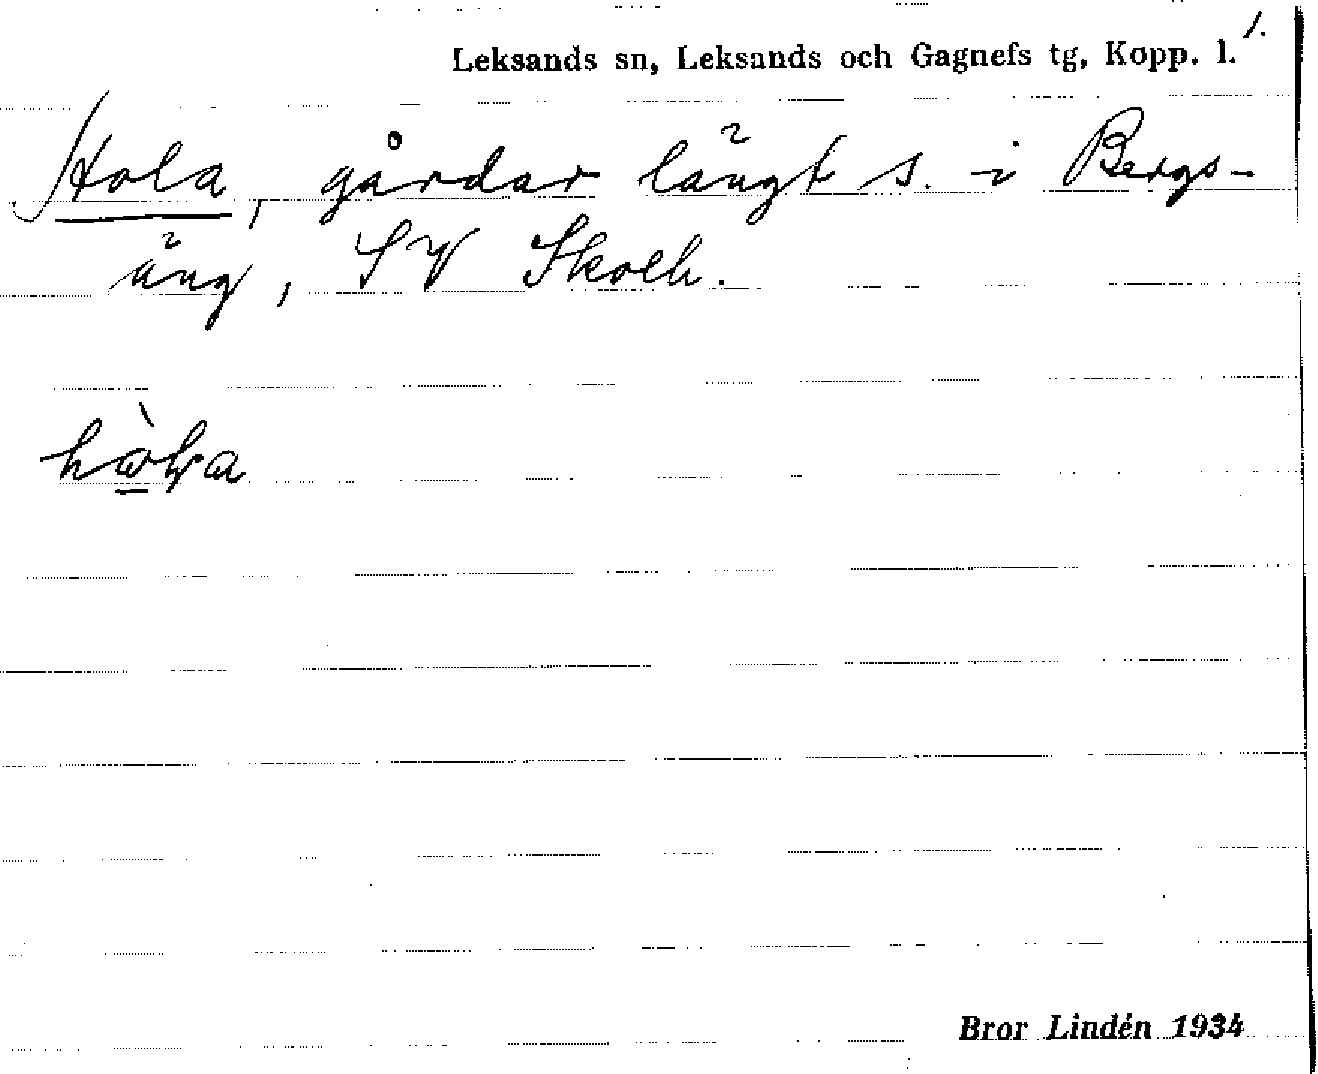 1.
Leksands sn, Leksands och Gagnefs tg, Kopp. l.
Hola, gårdar längt s. i Bergs-
äng, SV Skoelh.
Bror Lindén 1934